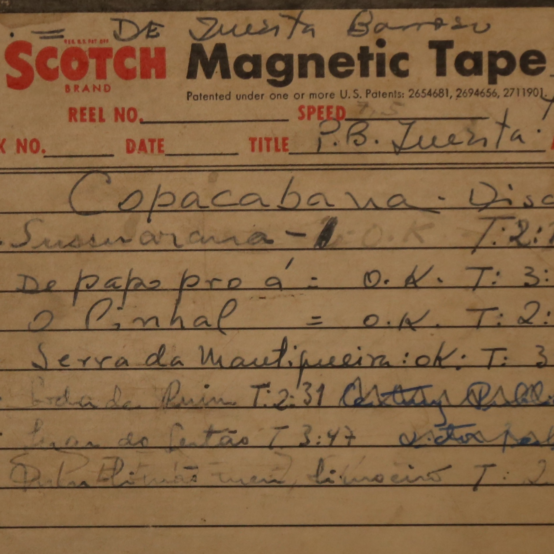 = DE Inezita Barroso
REG. U.S. PAT. OFF.
SCOTCH Magnetic Tape
BRAND
Patented under one or more U.S. Patents: 2654681, 2694656, 2711901,
REEL NO. SPEED
K NO. DATE TITLE P.B. Inezita.
Copacabana - Disc
Sussuarana - 1 O.K T:2:
De papo pro á = O.K. T: 3:
O Pinhal = O.K. T: 2:
Serra da Mantiqueira: OK: T: 3
da Ruim T:2:31
do Sertão T 3:47
meu limoeiro T: 2